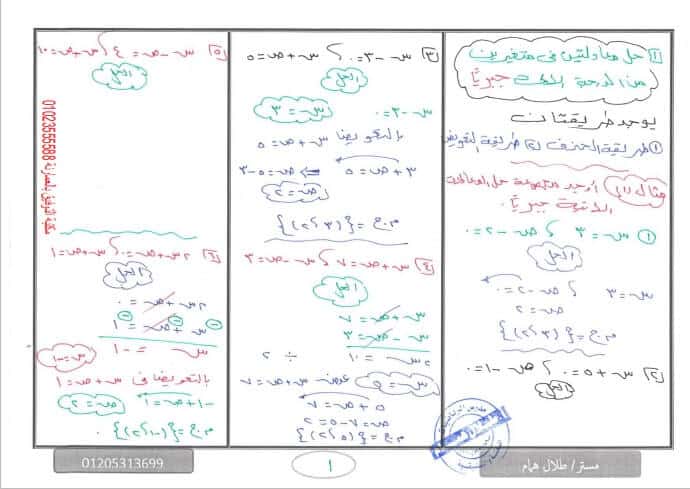 [١] حل معادلتين فى متغيرين
من الدرجة الاولى جبريًا
يوجد طريقتان
① طريقة الحذف (٢) طريقة التعويض
مثال (١) أوجد مجموعة حل المعادلات
الاتية جبريًا
① س = ٣ ، ص - ٢ = ٠
الحل
س = ٣ ، ص - ٢ = ٠
ص = ٢
م.ح = {(٣،٢)}
[٢] س + ٥ = ٠ ، ص - ١ = ٠
الحل
[٣] س - ٣ = ٠ ، س + ص = ٥
الحل
س - ٣ = ٠
س = ٣
بالتعويض س + ص = ٥
٣ + ص = ٥ ⇐ ص = ٥ - ٣
ص = ٢
م.ح = {(٣،٢)}
[٤] س + ص = ٧ ، س - ص = ٣
الحل
س + ص = ٧
س - ص = ٣
٢س = ١٠ ÷ ٢
س = ٥
عوض س + ص = ٧
٥ + ص = ٧
ص = ٧ - ٥ = ٢
م.ح = {(٥،٢)}
[٥] س - ص = ٤ ، س + ص = ١٠
الحل
[٦] ٢س + ص = ٠ ، س + ص = ١
الحل
٢س + ص = ٠
س + ص = ١
س = -١
س = -١
بالتعويض فى س + ص = ١
-١ + ص = ١
ص = ٢
م.ح = {(-١،٢)}
01023555588
مستر/ طلال همام
١
01205313699